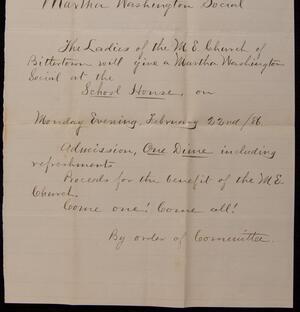 Martha Washington Social
The Ladies of the M.E. Church of
Bittstown will give a Martha Washington
Social at the
School House, on
Monday Evening, February 22nd/86.
Admission, One Dime including
refreshments
Proceeds for the benefit of the M.E.
Church.
Come one! Come all!
By order of Committee.